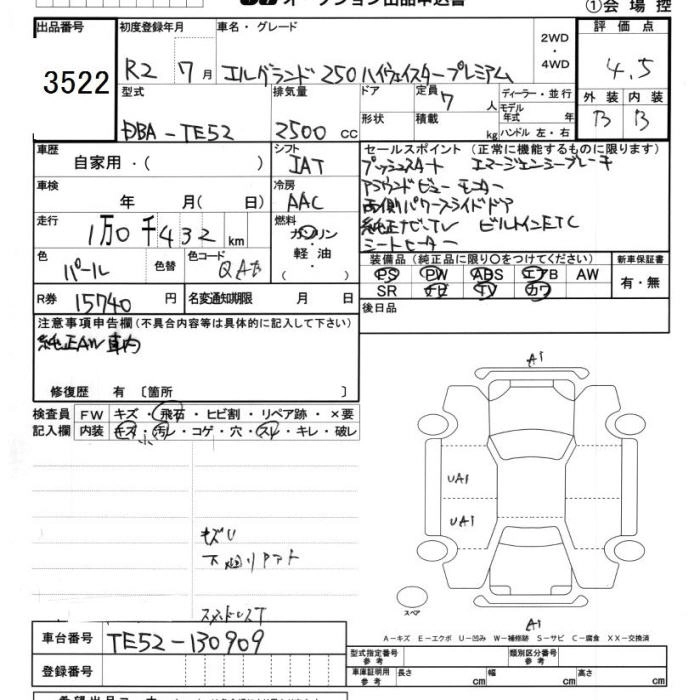 オークション出品申込書
①会場控
出品番号 3522
初度登録年月 R2 7月
車名・グレード エルグランド 250 ハイウェイスタープレミアム
2WD・4WD
評価点 4.5
外装 B 内装 B
型式 DBA-TE52
排気量 2500 CC
ドア 形状
定員 7人
積載 kg
ディーラー・並行
モデル年式 年
ハンドル 左・右
車歴 自家用・( )
シフト IAT
車検 年 月( 日)
冷房 AAC
走行 1万0千432 km
燃料 ガソリン・軽油・( )
色 パール
色替
色コード QAB
R券 15740円
名変通知期限 月 日
セールスポイント(正常に機能するものに限ります)
プッシュスタート エマージェンシーブレーキ
アラウンドビューモニター
両側パワースライドドア
純正ナビ・TV ビルトインETC
シートヒーター
装備品(純正品に限り○をつけてください)
PS PW ABS エアB AW
SR ナビ TV カワ
新車保証書
有・無
後日品
注意事項申告欄(不具合内容等は具体的に記入して下さい)
純正AW 車内
修復歴 有〔箇所 〕
検査員記入欄
FW キズ・飛石・ヒビ割・リペア跡・×要
内装 キズ・汚レ・コゲ・穴・スレ・キレ・破レ
キズU
下廻り
A1
UA1
UA1
スペア
A1
A-キズ E-エクボ U-凹み W-補修跡 S-サビ C-腐食 XX-交換済
車台番号 TE52-130909
登録番号
型式指定番号 参考
類別区分番号 参考
車庫証明用 参考 長さ cm 幅 cm 高さ cm
希望出品コーナー